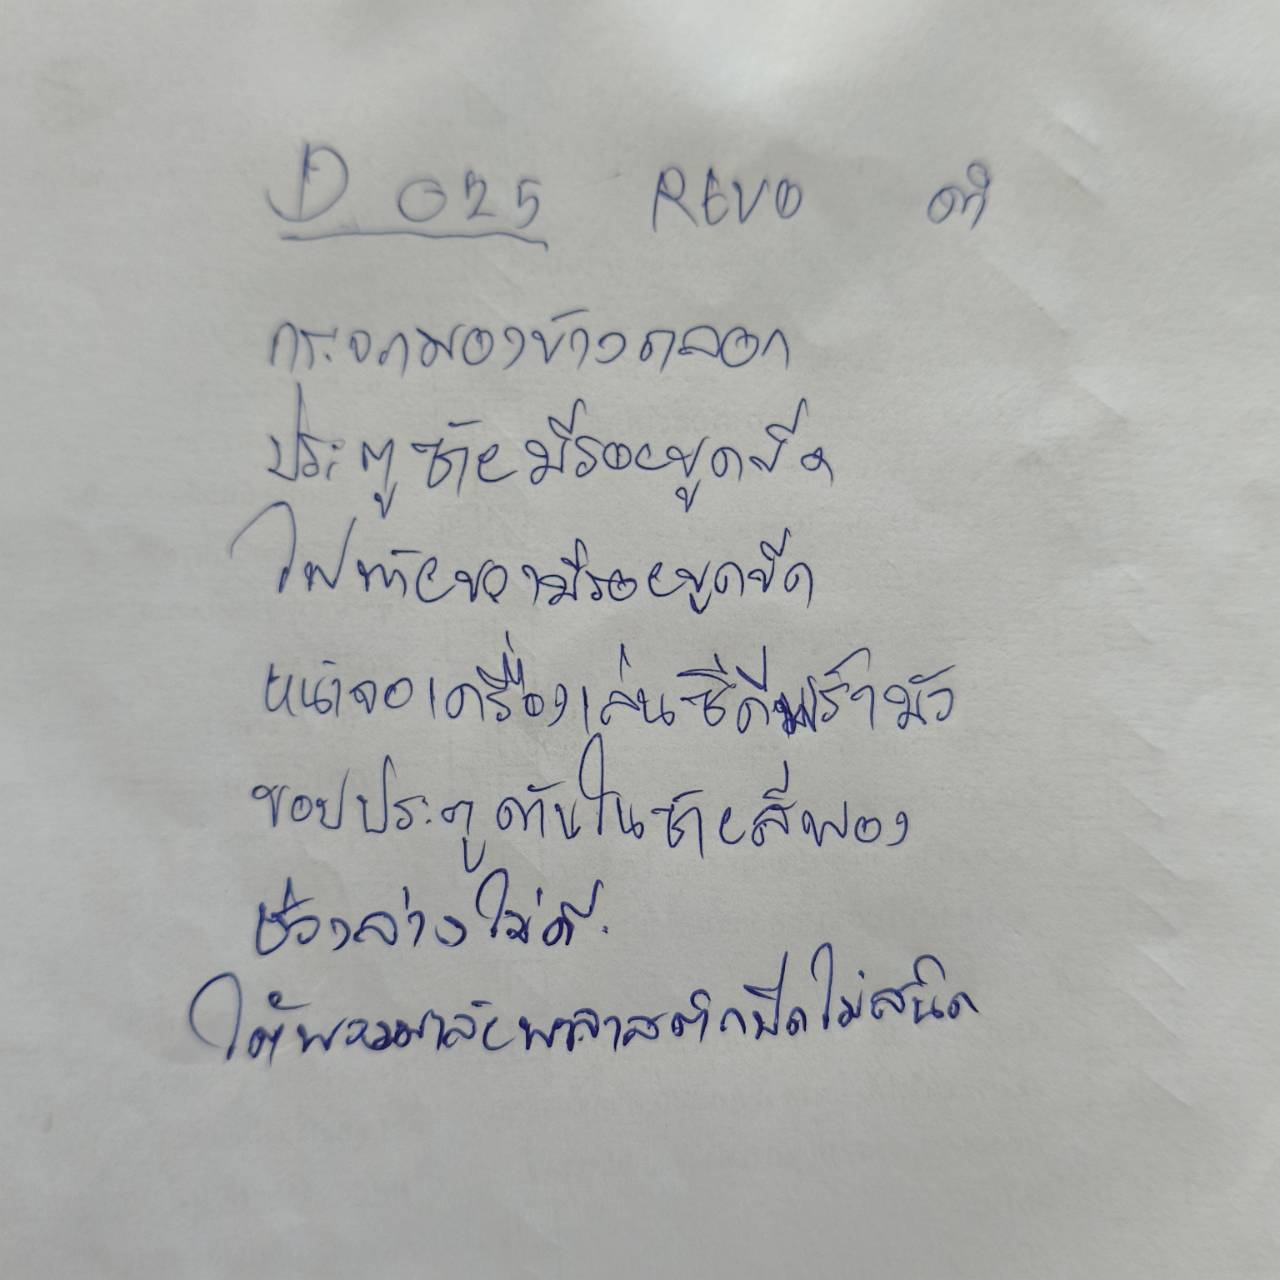 D 025 REVO ดำ
กระจกมองข้างถลอก
ประตูซ้ายมีรอยขูดขีด
ไฟท้ายขวามีรอยขูดขีด
หน้าจอเครื่องเล่นซีดีพร่ามัว
ขอบประตูด้านในซ้ายสีพอง
ช่วงล่างไม่ดี.
ใต้พวงมาลัยพลาสติกปิดไม่สนิด